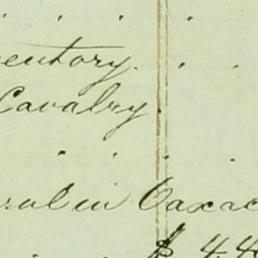 entory. . .
Cavalry.
ral in Oaxac
$ 4.4